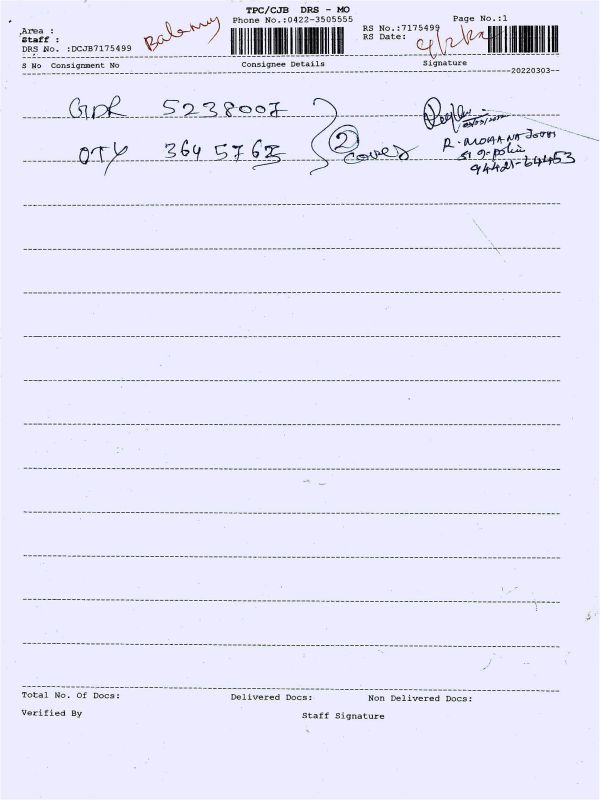 TPC/CJB DRS - MO
Phone No.:0422-3505555
Page No.:1
Area :
Staff :
DRS No. :DCJB7175499
RS No.:7175499
RS Date:
S No Consignment No
Consignee Details
Signature
--20220303--
GDR 5238007
OTY 3645762
2
cover
R. MOHANA
94421-64453
Total No. Of Docs:
Delivered Docs:
Non Delivered Docs:
Verified By
Staff Signature